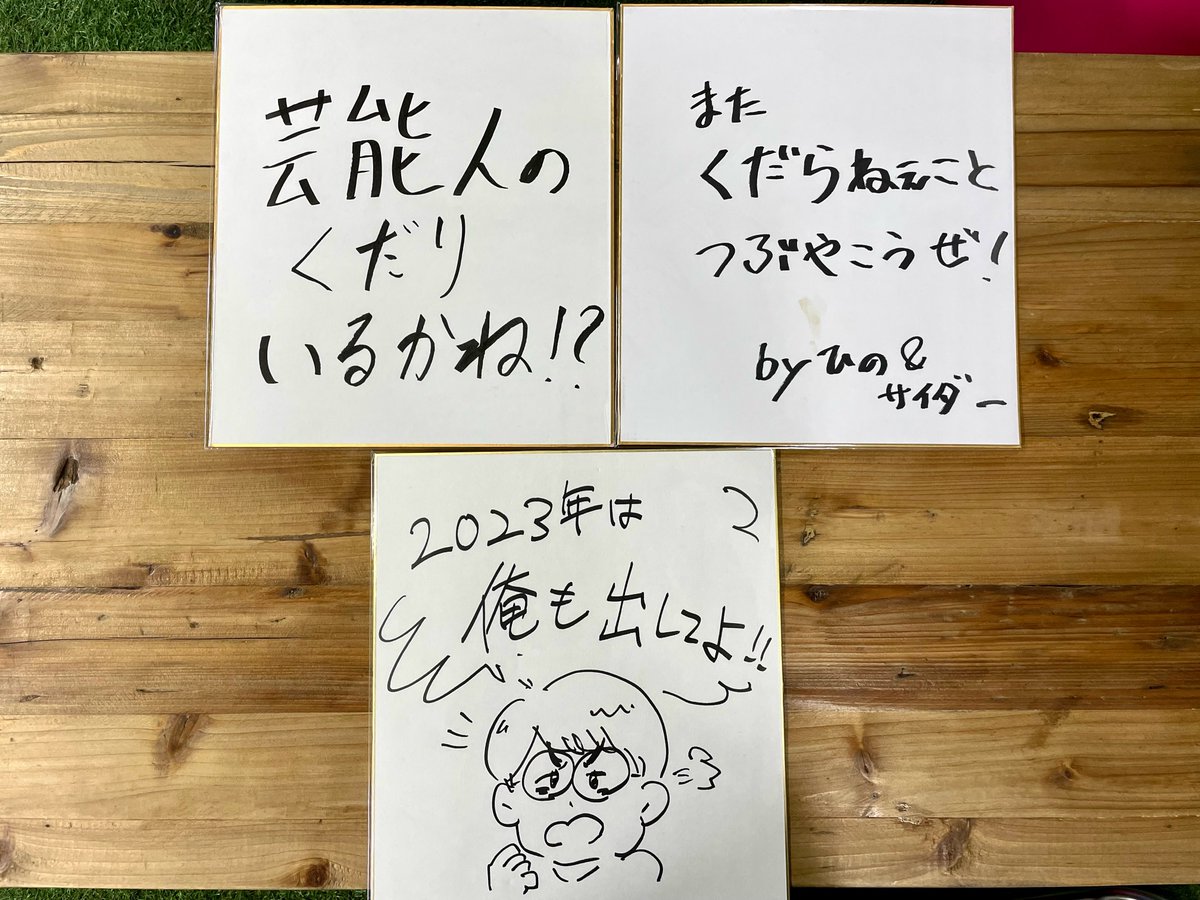 芸能人の
くだり
いるかね!?
また
くだらねぇこと
つぶやこうぜ!
by ひの&
サイダー
2023年は
俺も出してよ!!